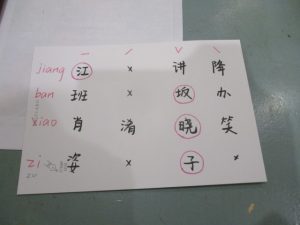 ー ˊ ˇ ˋ
jiang 江 × 讲 降
ban 班 × 坂 办
xiao 肖 淆 晓 笑
zi 姿 × 子 ×